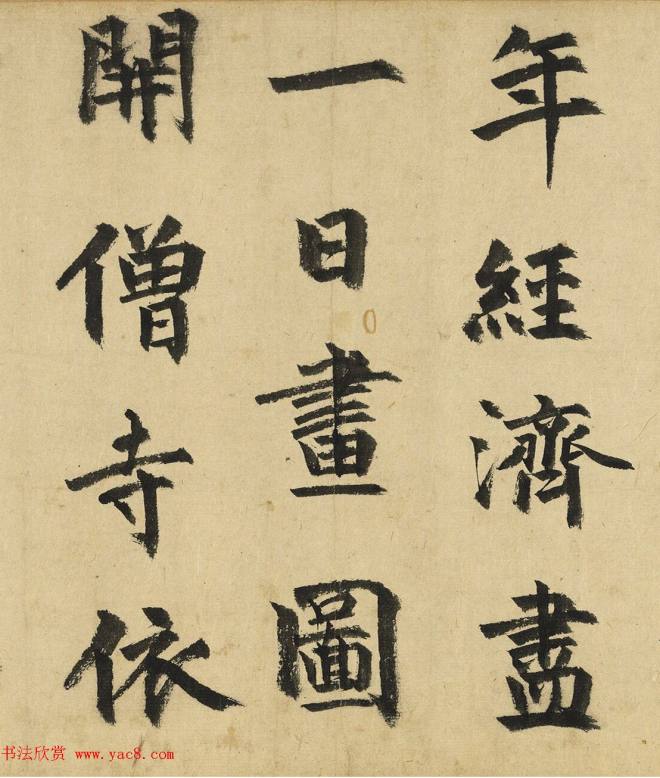 年經濟盡
一日畫圖
開僧寺依
书法欣赏 www.yac8.com